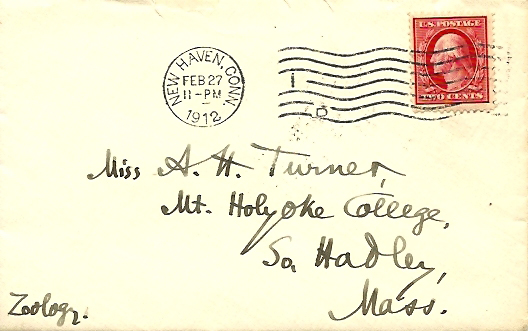 U.S. POSTAGE
TWO CENTS
NEW HAVEN, CONN.
FEB 27
11-PM
1912
Miss A. H. Turner,
Mt. Holyoke College,
So. Hadley,
Mass.
Zoology.